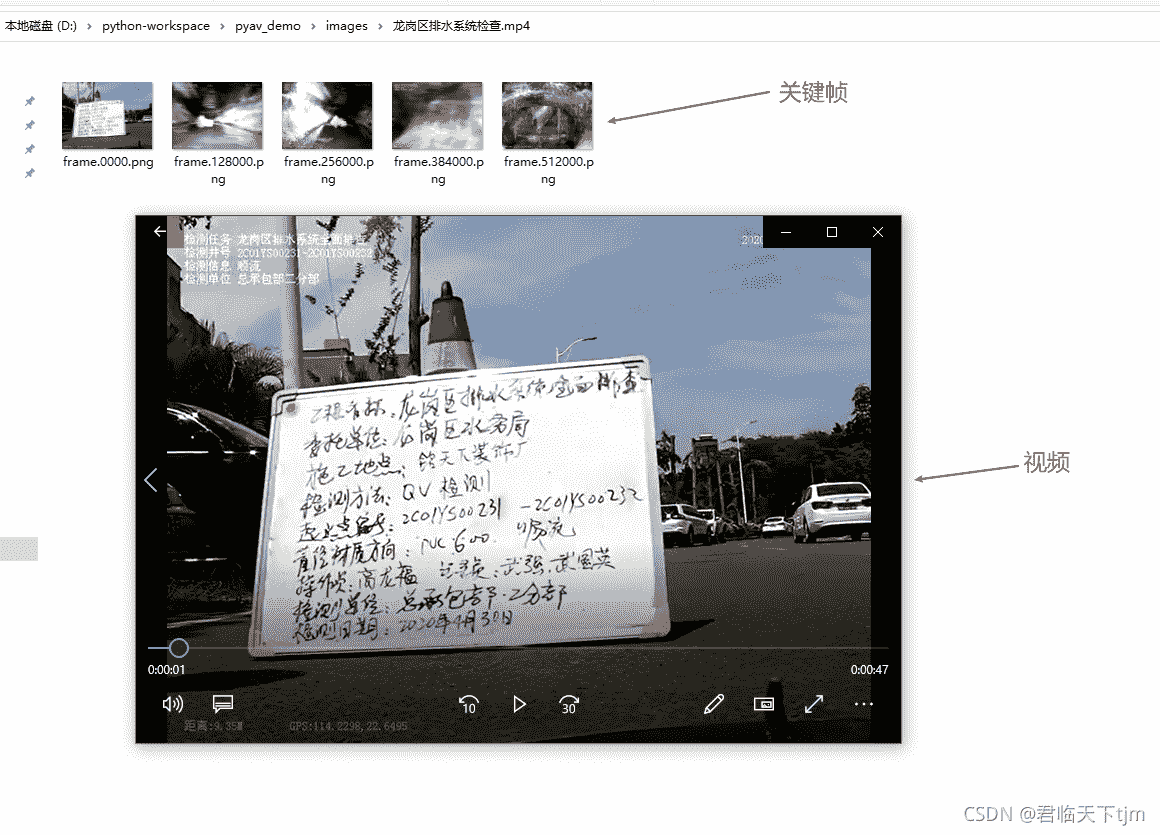 本地磁盘 (D:) › python-workspace › pyav_demo › images › 龙岗区排水系统检查.mp4
关键帧
frame.0000.png
frame.128000.p
ng
frame.256000.p
ng
frame.384000.p
ng
frame.512000.p
ng
检测任务 龙岗区排水系统全面排查
2020
检测井号 2C01YS00231-2C01YS00232
检测信息 顺流
检测单位 总承包部二分部
工程名称:龙岗区排水系统全面排查
委托单位:龙岗区水务局
施工地点:铭天下装饰厂
检测方法:QV 检测
起止点编号:2C01YS00231 -2C01YS00232
直径材质方向:PVC 600. 顺流
操作员:高龙福 武强.武国英
检测单位:总承包部.二分部
检测日期:2020年4月30日
视频
0:00:01
0:00:47
10
30
距离:9.35M GPS:114.2298,22.6495
CSDN @君临天下tjm